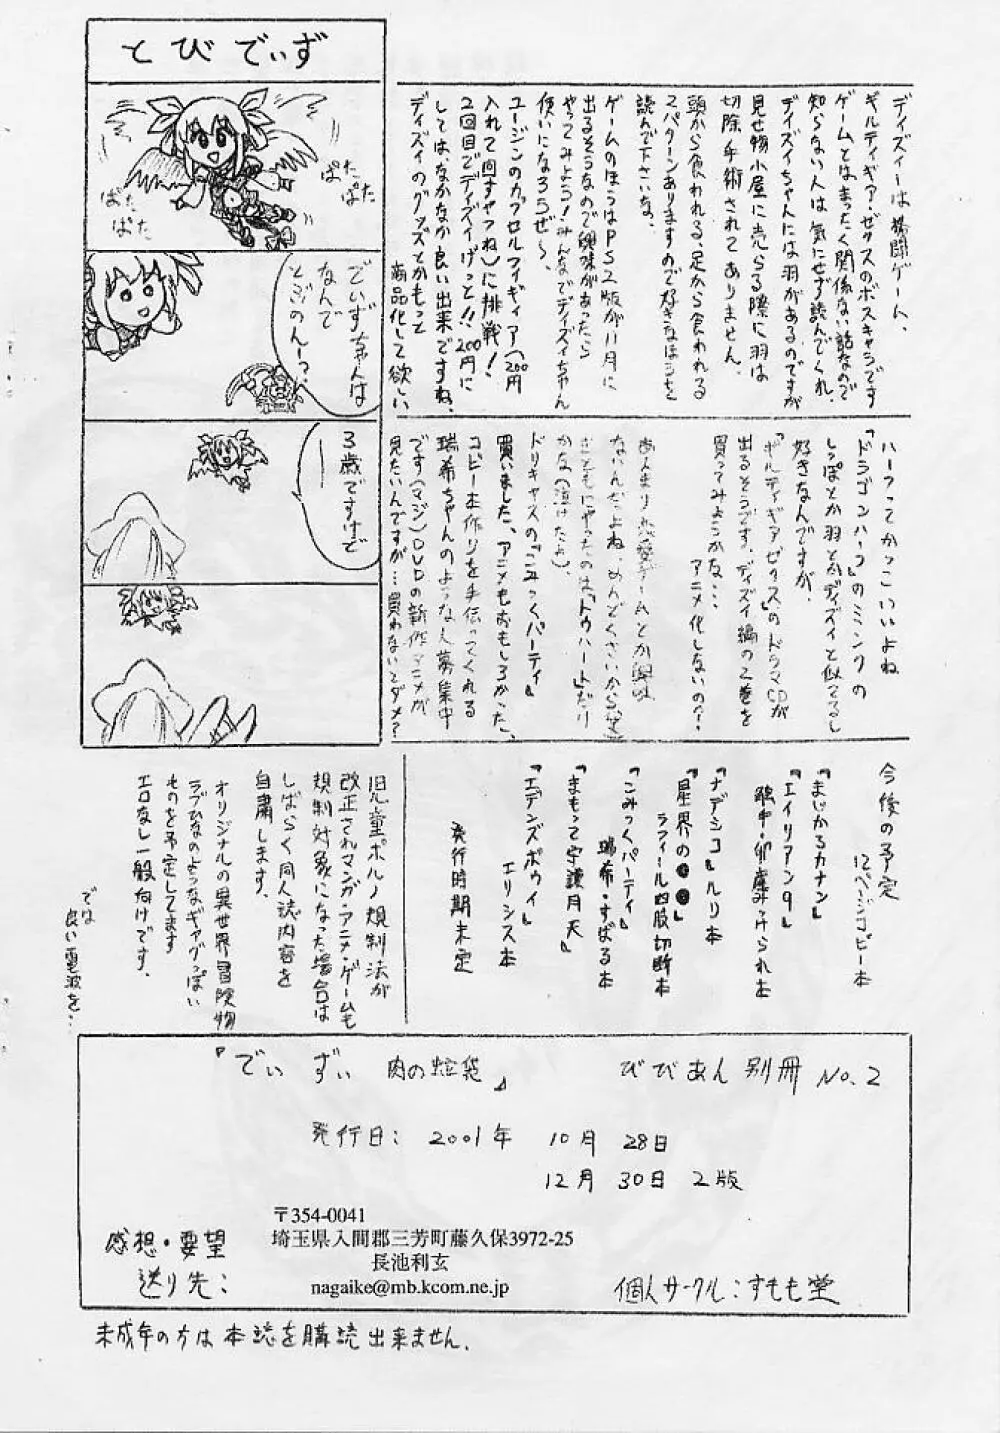 とびでぃず
ぱた
ぱた
ぱた
ぱた
でぃずちゃんは
なんで
とぶのん〜?
3歳ですけど
ディズィーは格闘ゲーム、
ギルティギア・ゼクスのボスキャラです
ゲームとはまったく関係ない話なので
知らない人は気にせず読んでくれ、
ディズィちゃんには羽があるのですが
見せ物小屋に売らる際に羽は
切除手術されてありません。
頭から食われる、足から食われる
2パターンありますので好きなほうを
読んで下さいな。
ゲームのほうはPS2版が11月に
出るそうなので興味があったら
やってみよう!みんなでディズィちゃん
使いになろうぜ〜、
ユージンのカプセルフィギィア(200円
入れて回すヤツね)に挑戦!
2回目でディズィげっと!!200円に
しては、なかなか良い出来ですね、
ディズィのグッズとかもって
商品化して欲しい
ハーフってかっこいいよね
『ドラゴンハーフ』のミンクの
しっぽとか羽とかディズィと似てるし
好きなんですが、
『ギルティギアゼクス』のドラマCDが
出るそうです、ディズィ編の2巻を
買ってみようかな…
アニメ化しないの?
あんまり恋愛ゲームとか興味
ないんだよね、めんどくさいから(笑)
まともにやったのは、『トゥハート』だけ
かな(泣けたよ)、
ドリキャスの『こみっくパーティ』
買いました、アニメもおもしろかった、
コピー本作りを手伝ってくれる
瑞希ちゃんのような人募集中
です(マジ)DVDの新作アニメが
見たいんですが…買わないとダメ?
今後の予定
12ページコピー本
『まじかるカナン』
『エイリアン9』
卵産みつけられ本
『ナデシコ』ルリ本
『星界の●●』
ラフィール四肢切断本
『こみっくパーティ』
瑞希・すばる本
『まもって守護月天』
『エデンズボゥイ』
エリシス本
発行時期未定
児童ポルノ規制法が
改正されマンガ・アニメ・ゲームも
規制対象になった場合は
しばらく同人誌内容を
自粛します。
オリジナルの異世界冒険物
ラブひなのようなギャグっぽい
ものを予定してます
エロなし一般向けです。
では
良い電波を…
『でぃずぃ 肉の袋』 びびあん 別冊 No.2
発行日: 2001年 10月 28日
12月 30日 2版
感想・要望
送り先:
〒354-0041
埼玉県入間郡三芳町藤久保3972-25
長池利玄
nagaike@mb.kcom.ne.jp
個人サークル:すもも堂
未成年の方は本誌を購読出来ません.